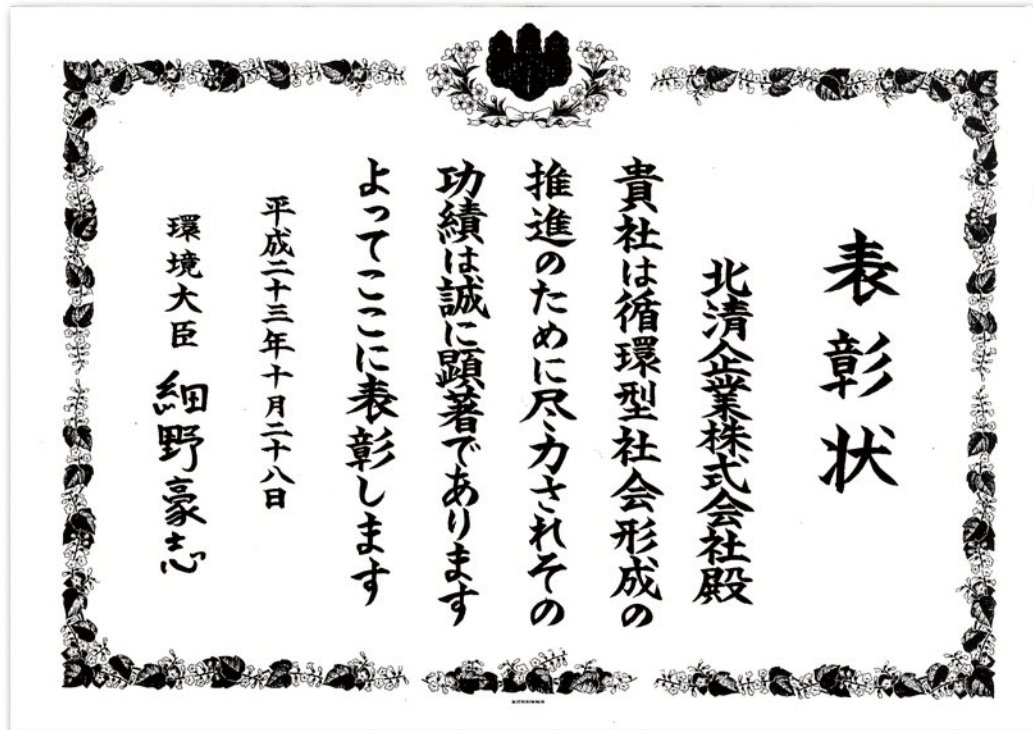 表彰状
北清企業株式会社殿
貴社は循環型社会形成の
推進のために尽力されその
功績は誠に顕著であります
よってここに表彰します
平成二十三年十月二十八日
環境大臣 細野豪志